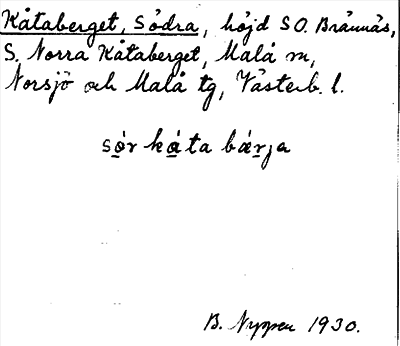 Kåtaberget, Södra, höjd SO. Brännäs,
S. Norra Kåtaberget, Malå m,
Norsjö och Malå tg, Västerb. l.
sǿr ká̱ta bǽrja
B. Nyppen 1930.